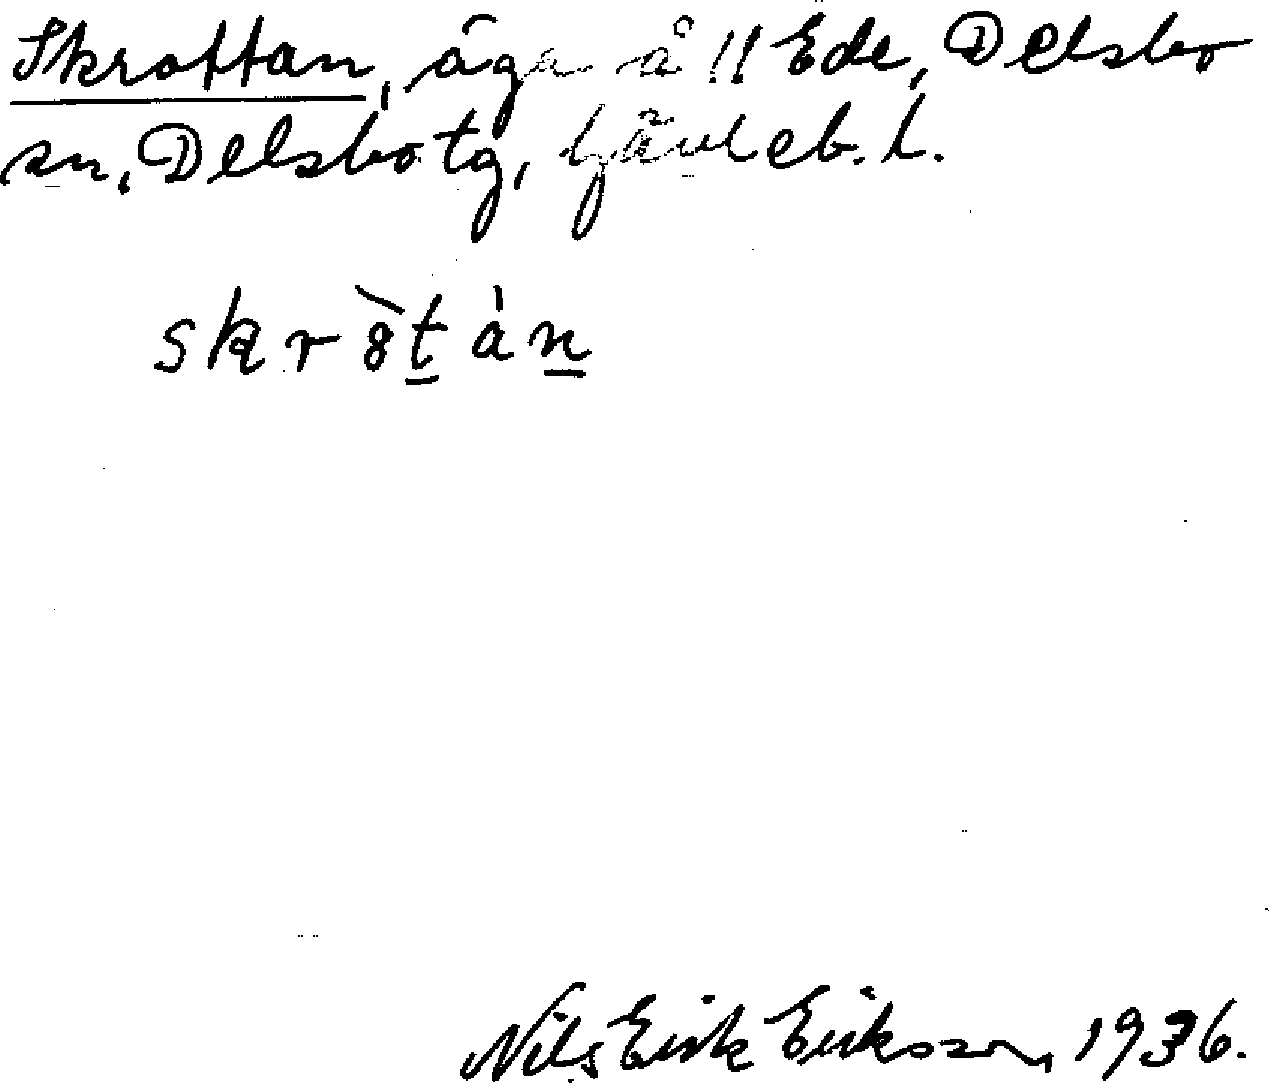 Skrottan, äga å 11 Ede, Delsbo
sn, Delsbo tg, Gävleb. l.
skr8̀tàn
Nils Erik Eriksson, 1936.